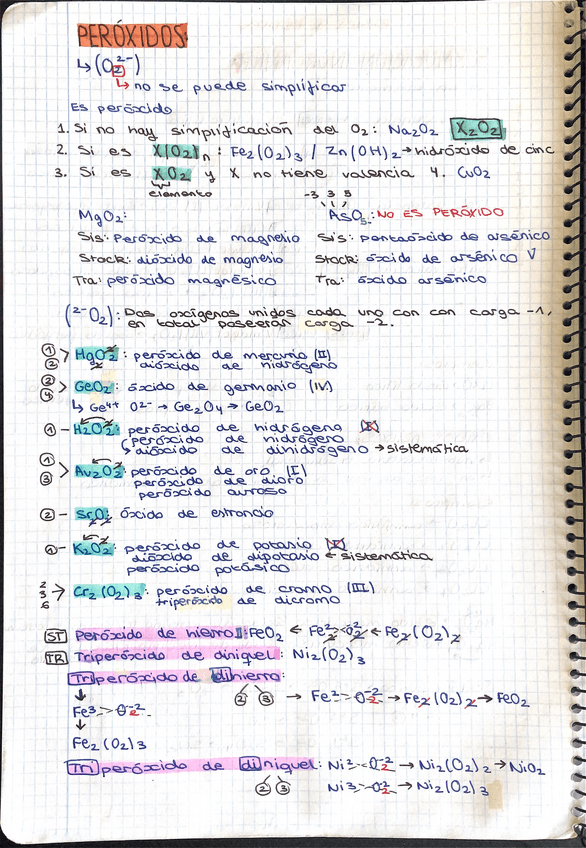 PERÓXIDOS:
↳(O₂²⁻)
↳ no se puede simplificar
Es peróxido
1. Si no hay simplificación del O₂: Na₂O₂ X₂O₂
2. Si es X(O₂)n : Fe₂(O₂)₃ / Zn(OH)₂→hidróxido de cinc
3. Si es XO₂ y X no tiene valencia 4. CuO₂
elemento -3 3 5
MgO₂: AsO₅: NO ES PERÓXIDO
Sis: Peróxido de magnesio Sis: pentaóxido de arsénico
Stock: dióxido de magnesio Stock: óxido de arsénico V
Tra: peróxido magnésico Tra: óxido arsénico
(²⁻O₂): Dos oxígenos unidos cada uno con con carga -1,
en total poseerán carga -2.
① ② > HgO₂²: peróxido de mercurio (II)
dióxido de hidrógeno
② ④ > GeO₂: óxido de germanio (IV)
↳ Ge⁴⁺ O²⁻ → Ge₂O₄ → GeO₂
① - H₂O₂²: peróxido de hidrógeno (I)
peróxido de hidrógeno
dióxido de dinidrógeno → sistemática
① ③ > Au₂O₂²: peróxido de oro (I)
peróxido de dioro
peróxido auroso
② - SrO: óxido de estroncio
① - K₂O₂: peróxido de potasio (I)
dióxido de dipotasio ← sistemática
peróxido potásico
2 3 6 > Cr₂(O₂)₃: peróxido de cromo (III)
triperóxido de dicromo
ST Peróxido de hierro II: FeO₂ ← Fe²⁻ O₂² ← Fe₂(O₂)₂
TR Triperóxido de diníquel: Ni₂(O₂)₃
Triperóxido de dihierro:
↓ ② ③ → Fe² O₂⁻² → Fe₂(O₂)₂ → FeO₂
Fe³ O₂⁻²
↓
Fe₂(O₂)₃
Tri peróxido de diníquel: Ni² O₂⁻² → Ni₂(O₂)₂ → NiO₂
② ③ Ni³ O₂⁻² → Ni₂(O₂)₃